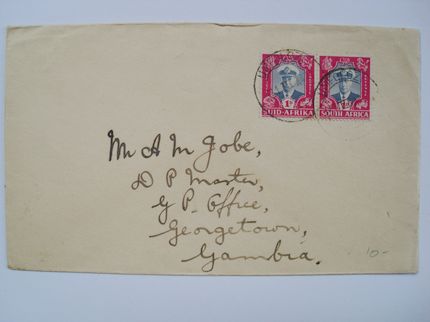 1D 1D
SUID-AFRIKA SOUTH AFRICA
Mr A M Jobe,
D P Master,
G P. Office,
Georgetown,
Gambia.
10-